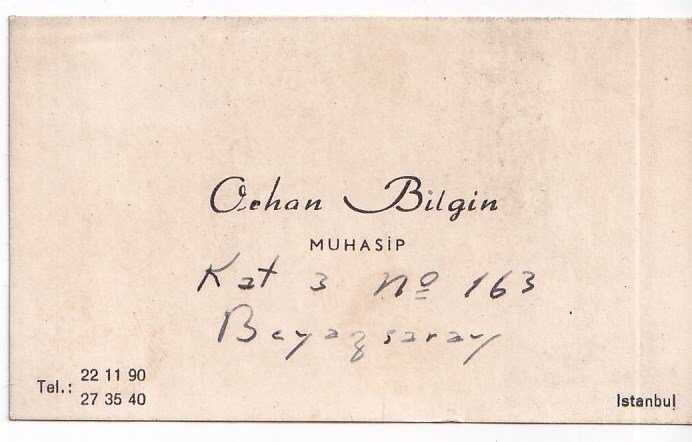 Orhan Bilgin
MUHASİP
Kat 3 No 163
Beyazsaray
Tel.: 22 11 90
27 35 40
Istanbul